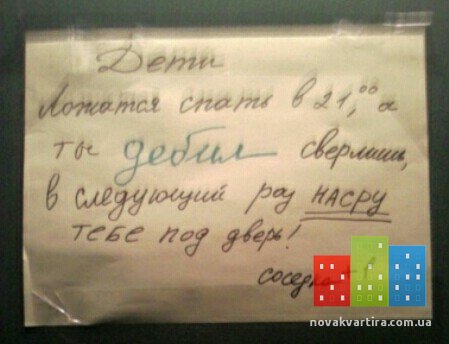 Дети
Ложатся спать в 21,⁰⁰ а
ты дебил сверлишь,
в следующий раз НАСРУ
тебе под дверь!
novakvartira.com.ua